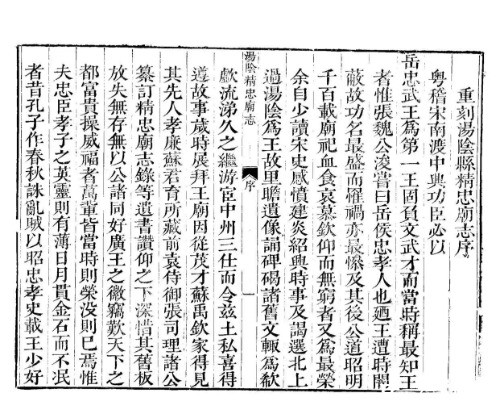 重刻湯陰縣精忠廟志序
粵稽宋南渡中興功臣必以
岳忠武王爲第一王固負文武才而當時稱最知王
者惟張魏公浚嘗曰岳侯忠孝人也廼王遭時闇
蔽故功名最盛而惟禍亦最慘及其後公道昭明
千百載廟祀血食哀慕欽仰而無窮者又爲最榮
余自少讀宋史感憤建炎紹興時事及謁選北上
過湯陰爲王故里瞻遺像誦碑碣諸舊文輒爲欷
湯陰精忠廟志
序
一
歔流涕久之繼游宦中州三仕而令兹土私喜得
遵故事歲時展拜王廟因從茂才蘇禹欽家得見
其先人孝廉蘇君育所藏前袁侍御張司理諸公
纂訂精忠廟志錄等遺書讚仰之下深惜其舊板
放失無存無以公諸同好廣王之徽竊歎天下之
都富貴操威福者萬輩皆當時則榮沒則已焉惟
夫忠臣孝子之英靈則有薄日月貫金石而不泯
者昔孔子作春秋誅亂賊以昭忠孝史載王少好